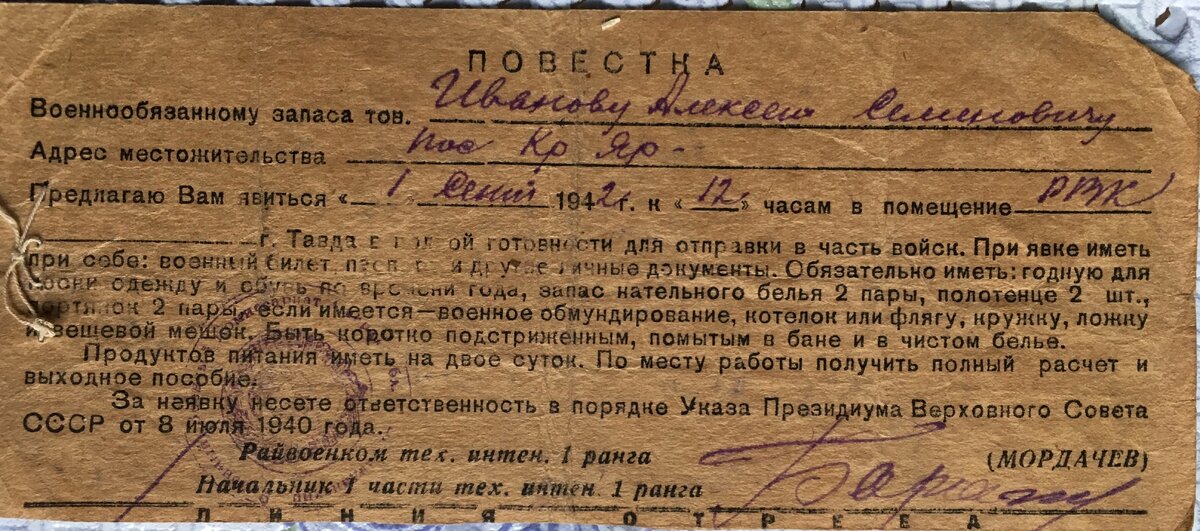 ПОВЕСТКА
Военнообязанному запаса тов. Иванову Алексею Семеновичу
Адрес местожительства пос Кр Яр
Предлагаю Вам явиться « 1 » Сент 1942 г. к « 12 » часам в помещение РВК
г. Тавда в полной готовности для отправки в часть войск. При явке иметь
при себе: военный билет, паспорт и другие личные документы. Обязательно иметь: годную для
носки одежду и обувь по времени года, запас нательного белья 2 пары, полотенце 2 шт.,
портянок 2 пары, если имеется—военное обмундирование, котелок или флягу, кружку, ложку
и вещевой мешок. Быть коротко подстриженным, помытым в бане и в чистом белье.
Продуктов питания иметь на двое суток. По месту работы получить полный расчет и
выходное пособие.
За неявку несете ответственность в порядке Указа Президиума Верховного Совета
СССР от 8 июля 1940 года.
Райвоенком тех. интен. 1 ранга (МОРДАЧЕВ)
Начальник 1 части тех. интен. 1 ранга
ЛИНИЯ ОТРЕЗА